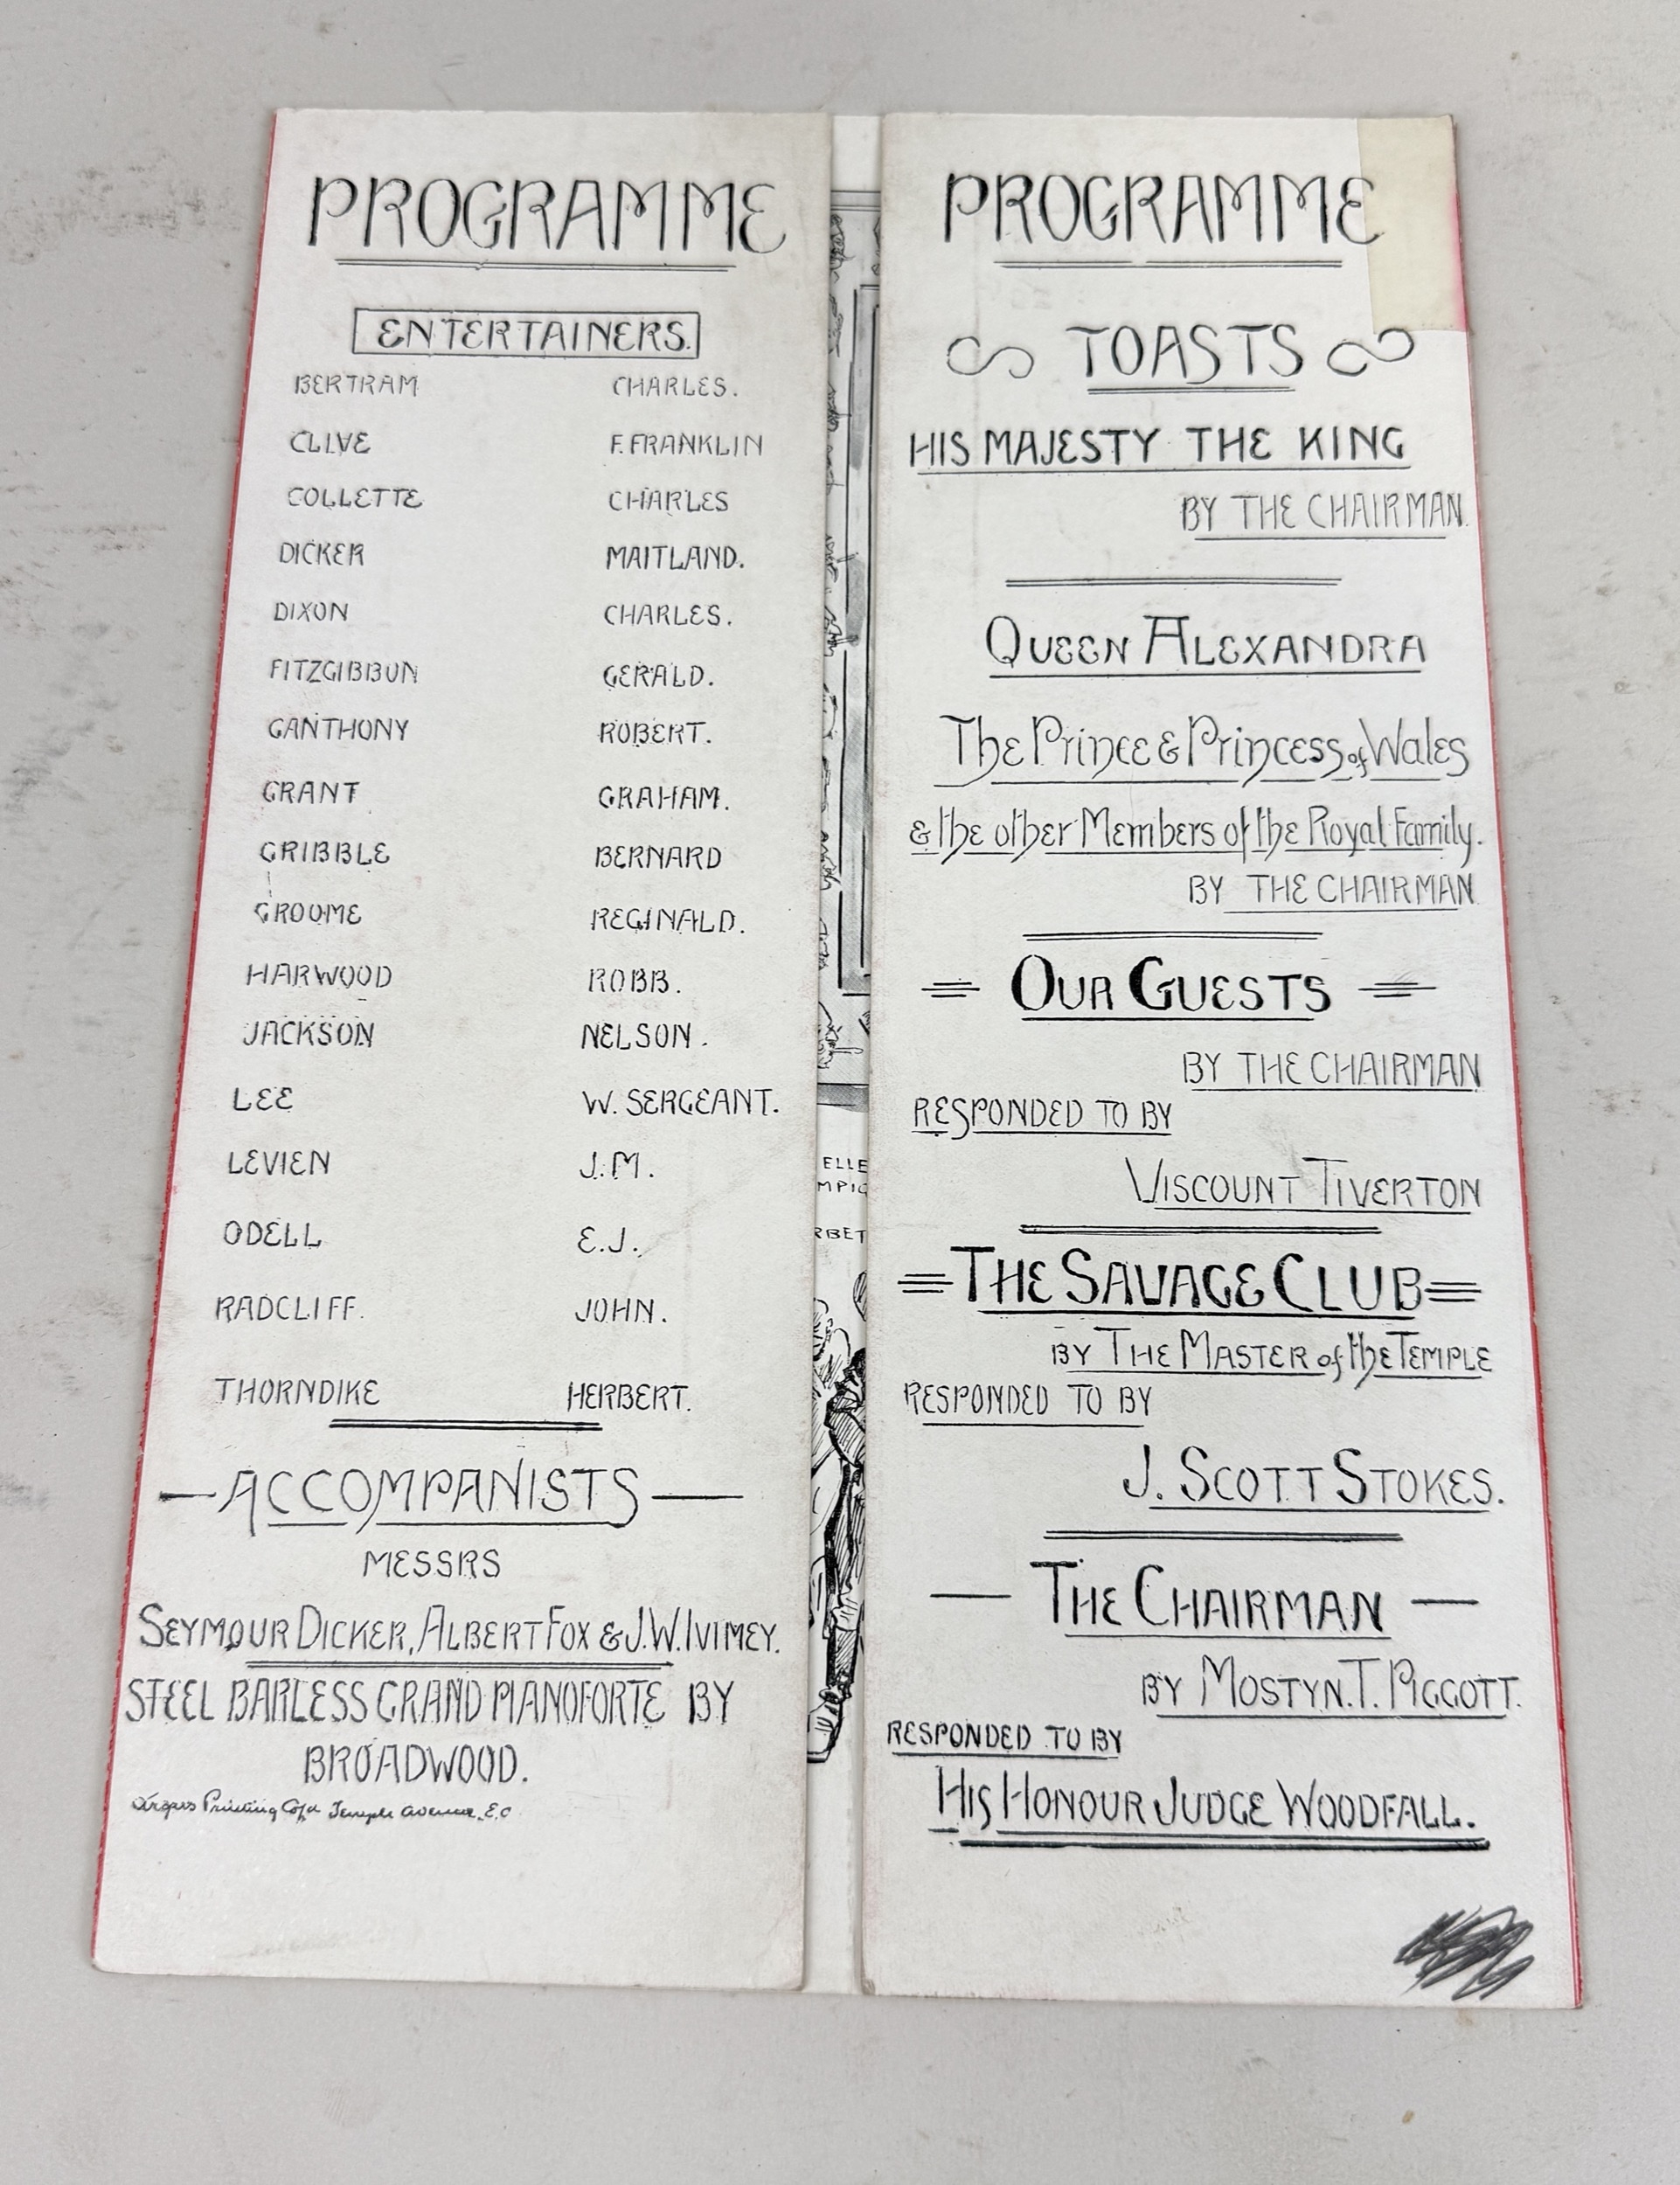 PROGRAMME
ENTERTAINERS.
BERTRAM CHARLES.
CLIVE F. FRANKLIN
COLLETTE CHARLES
DICKER MAITLAND.
DIXON CHARLES.
FITZGIBBON GERALD.
GANTHONY ROBERT.
GRANT GRAHAM.
GRIBBLE BERNARD
GROOME REGINALD.
HARWOOD ROBB.
JACKSON NELSON.
LEE W. SERGEANT.
LEVIEN J.M.
ODELL E.J.
RADCLIFF. JOHN.
THORNDIKE HERBERT.
ACCOMPANISTS
MESSRS
SEYMOUR DICKER, ALBERT FOX & J.W. IVIMEY.
STEEL BARLESS GRAND PIANOFORTE BY
BROADWOOD.
Argus Printing Co Ld Temple Avenue, E.C
ELLE
MPIG
RBET
PROGRAMME
TOASTS
HIS MAJESTY THE KING
BY THE CHAIRMAN.
QUEEN ALEXANDRA
The Prince & Princess of Wales
& the other Members of the Royal Family.
BY THE CHAIRMAN
OUR GUESTS
BY THE CHAIRMAN
RESPONDED TO BY
VISCOUNT TIVERTON
THE SAVAGE CLUB
BY THE MASTER of the TEMPLE
RESPONDED TO BY
J. SCOTT STOKES.
THE CHAIRMAN
BY MOSTYN. T. PIGGOTT.
RESPONDED TO BY
HIS HONOUR JUDGE WOODFALL.